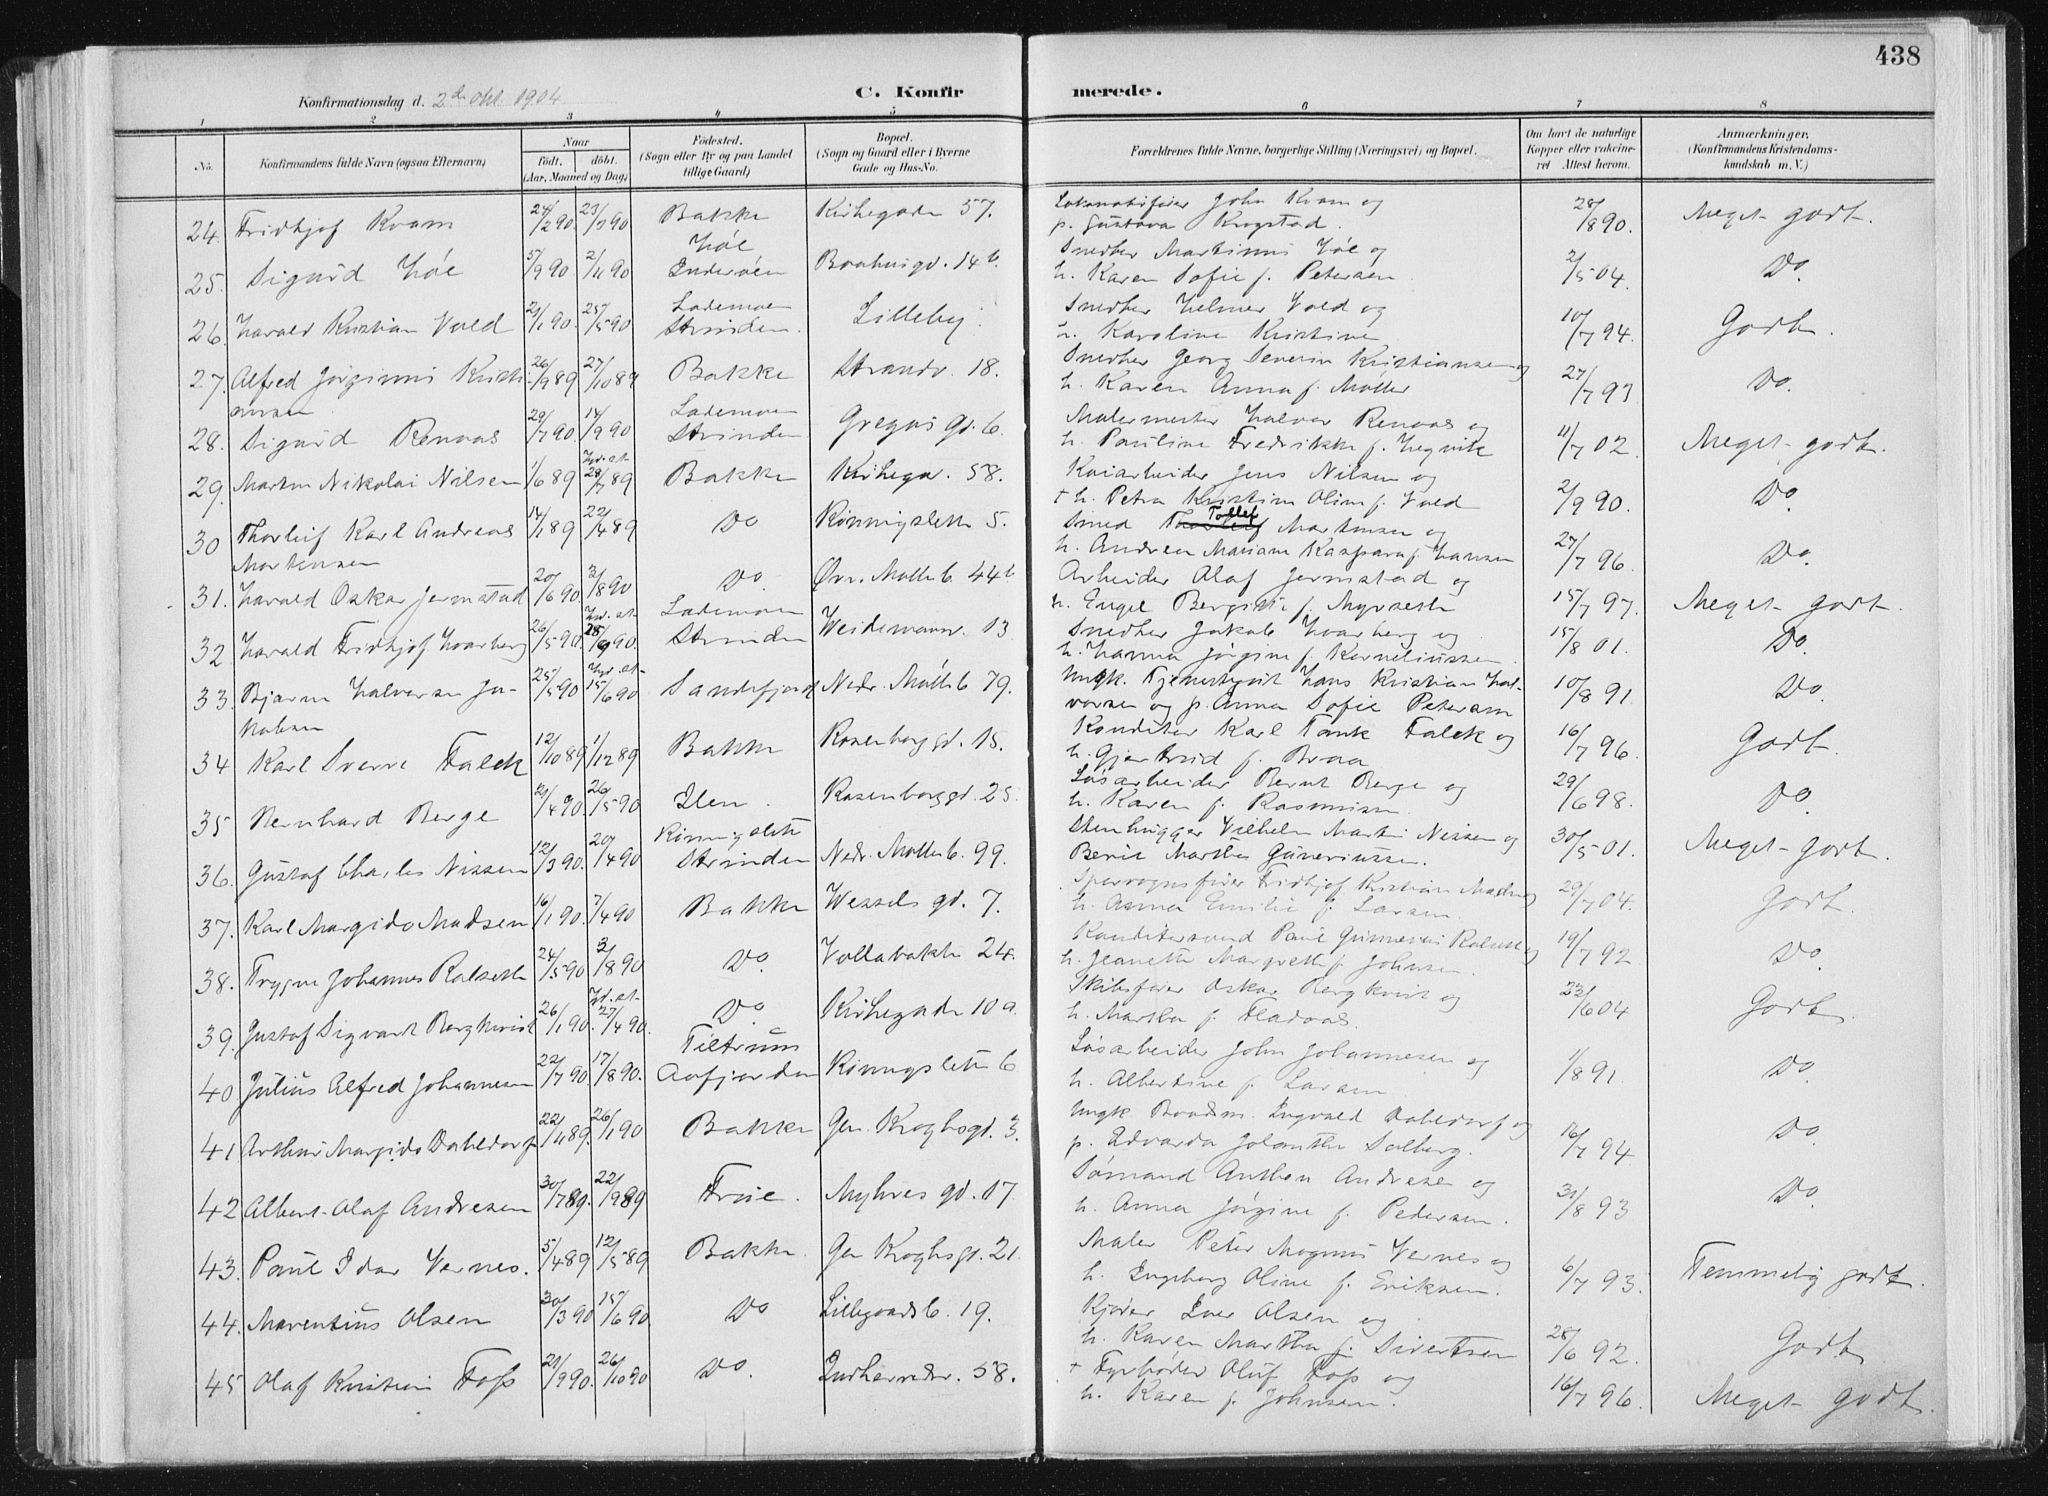 438
Konfirmationsdag d. 2de Okt. 1904
C. Konfirmerede.
1 2 3 4 5 6 7 8
No.
Konfirmandens fulde Navn (ogsaa Efternavn)
Naar
født, døbt.
(Aar, Maaned og Dag)
Fødested.
(Sogn eller By og paa Landet
tillige Gaard)
Bopæl.
(Sogn og Gaard eller i Byerne
Gade og Hus-No.
Forældrenes fulde Navne, borgerlige Stilling (Næringsvei) og Bopæl.
Om havt de naturlige
Kopper eller vakcine-
ret Attest herom.
Anmærkninger.
(Konfirmandens Kristendoms-
kundskab m. V.)
24. Fridtjof Kvam 24/2 90 23/3 90 Bakke Kirkegaden 57. Lokomotivfører John Kvam og
p. Gustava Krogstad. 28/8 90. Meget godt.
25. Sigurd Høe 5/9 90 2/11 90 Høe
Inderøen Baahusgd. 14b. Snedker Martinus Høe og
h. Karen Sofie f. Petersen. 2/5 04. Do.
26. Harald Kristian Vold 21/1 90. 25/5 90 Lademoen
Strinden. Lilleby. Snedker Helmer Vold og
h. Karoline Kristine 10/7 94. Godt.
27. Alfred Jørginus Kristi-
ansen 26/9 89 27/10 89 Bakke Strandv. 18. Snedker Georg Severin Kristiansen og
h. Karen Anna f. Møller 27/7 93 Do.
28. Sigurd Renaas 29/7 90. 14/9 90 Lademoen
Strinden Gregus gd. 6. Malermester Halvor Renaas og
h. Pauline Fredrikke f. Hegvik 11/7 02. Meget godt.
29. Martin Nikolai Nilsen 1/6 89 Hjd. at. 28/7 89 Bakke Kirkegd. 58. Kaiarbeider Jens Nilsen og
+ h. Petra Kristine Oline f. Vold 2/9 90. Do.
30 Thorleif Karl Andreas
Mortensen 14/1 89 22/4 89 Do Rønningsletten 5. Smed Tollef Mortensen og
h. Andrea Mariane Kaspara f. Hansen 27/7 96. Do.
31. Harald Oskar Jermstad 20/6 90. 3/8 90 Do. Øvr. Mølleb. 44b Arbeider Olaf Jermstad og
h. Engel Bergitte f. Myrseth 15/7 97. Meget godt.
32. Harald Fridtjof Hvarberg 26/5 90. Hjd. at. 28/6 90. Lademoen
Strinden Weidemannv. 13 Snedker Jakob Hvarberg og
h. Hanna Jørgine f. Korneliussen. 15/8 01. Do.
33. Bjarne Halvorsen Ja-
kobsen 25/5 90 Hjd. at. 15/6 90 Sandefjord Nedr. Mølleb. 79. Ungk. Tjenestegut Hans Kristian Hal-
vorsen og p. Anna Sofie Petersen 10/8 91. Do.
34 Karl Sverre Falck 12/10 89 1/12 89 Bakke Rosenborggd. 15. Konditor Karl Tank Falck og
h. Gjertrud f. Braa 16/7 96. Godt.
35 Bernhard Berge 21/4 90. 26/5 90 Ilen. Rosenborggd. 25. Løsarbeider Bernt Berge og
h. Karen f. Rasmussen. 29/6 98. Do.
36. Gustaf Charles Nissen 12/3 90. 20/4 90 Rønningsletten
Strinden Nedr. Mølleb. 99. Stenhugger Vilhelm Martin Nissen og
Berit Marthe Guneriussen. 30/5 01. Meget godt.
37. Karl Margido Madsen 16/1 90. 7/4 90 Bakke Wessels gd. 7. Sporvognsfører Fridtjof Kristian Madsen og
h. Anna Emilie f. Larsen. 29/7 04. Godt.
38. Trygve Johannes Ralseth 24/5 90 3/8 90 Do. Vollabakken 24. Konditorsvend Paul Gunerius Ralseth og
h. Jeanette Margrethe f. Johnsen. 19/7 92 Do.
39. Gustaf Sigvart Bergkvist 26/1 90. Hjd. at. 27/4 90. Do. Kirkegaden 10a. Skibsfører Oskar Bergkvist og
h. Martha f. Fladaas. 23/6 04 Godt.
40. Julius Alfred Johannesen 22/7 90 17/8 90. Tiltrum
Aafjorden Rønningsletten 6 Løsarbeider John Johannesen og
h. Albertine f. Larsen 1/8 91. Do.
41. Arthur Margido Dahldorf 22/11 89. 26/1 90 Bakke Gen. Kroghsgd. 3. Ungk. Baadsm. Ingvald Dahldorf og
p. Edvarda Jolanthe Solberg. 16/7 94. Do.
42 Albert Olaf Andresen 30/7 89. 22/9 89 Frue. Myhres gd. 17. Sømand Anthon Andresen og
h. Anna Jørgine f. Pedersen. 31/8 93 Do.
43. Paul Idar Vernes. 5/4 89 12/5 89 Bakke. Gen Kroghsgd. 21. Maler Peter Magnus Vernes og
h. Ingeborg Oline f. Eriksen. 6/7 93. Temmelig godt.
44. Marentius Olsen 30/3 90 15/6 90. Do Lillegaardsb. 19. Kjører Iver Olsen og
h. Karen Martha f. Sivertsen 28/6 92. Godt
45 Olaf Kristian Foss 21/9 90. 26/10 90 Do. Indherredsv. 58. + Fyrbøder Oluf Foss og
h. Karen f. Johnsen. 16/7 96. Meget godt.